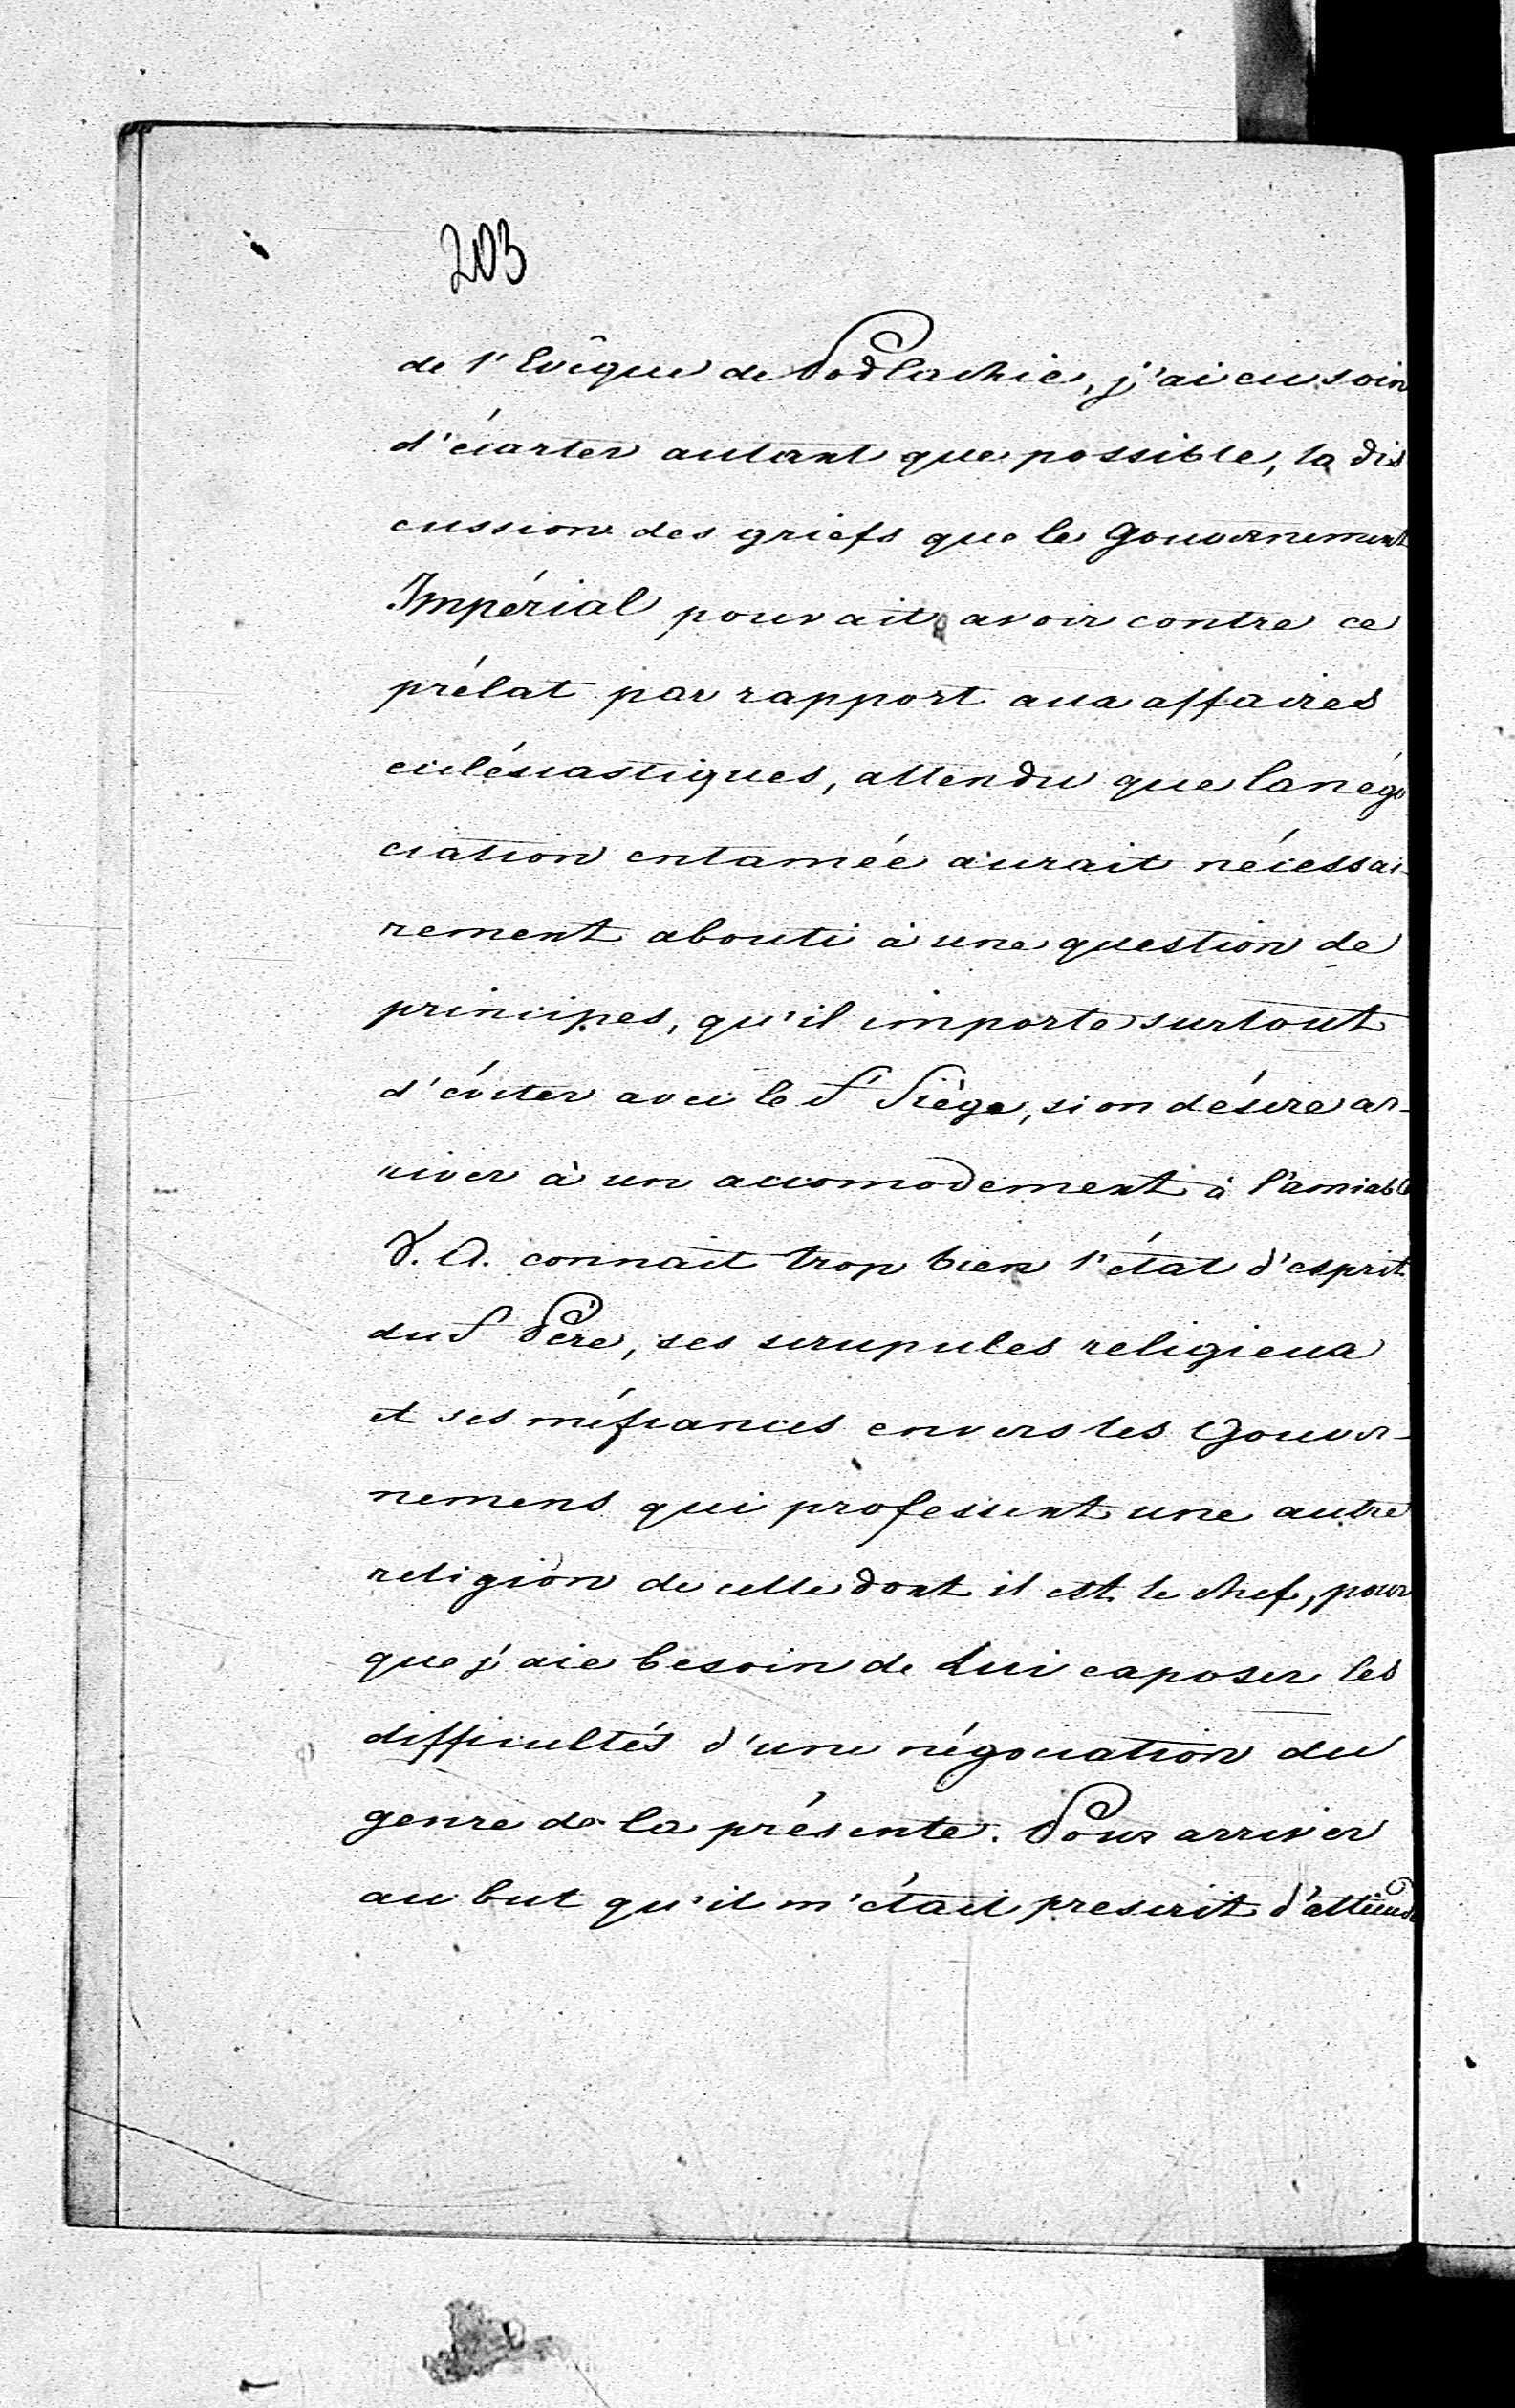 203
de l'Evêque de Podlachie, j'ai eu soin
d'écarter autant que possible, la dis
cussion des griefs que le Gouvernement
Impérial pouvait avoir contre ce
prélat par rapport aux affaires
ecclésiastiques, attendu que la négo
ciation entamée aurait nécessai-
rement abouti à une question de
principes, qu'il importe surtout
d'éviter avec le S Siège, si on désire ar-
river à un accomodement à l'amiable
V. A. connait trop bien l'état d'esprit
du S Père, ses scrupules religieux
et ses méfiances envers les Gouver-
nemens qui professent une autre
religion de celle dont il est le chef, pour
que j'aie besoin de Lui exposer les
difficultés d'une négociation du
genre de la présente. Pour arriver
au but qu'il m'était prescrit d'atteindre